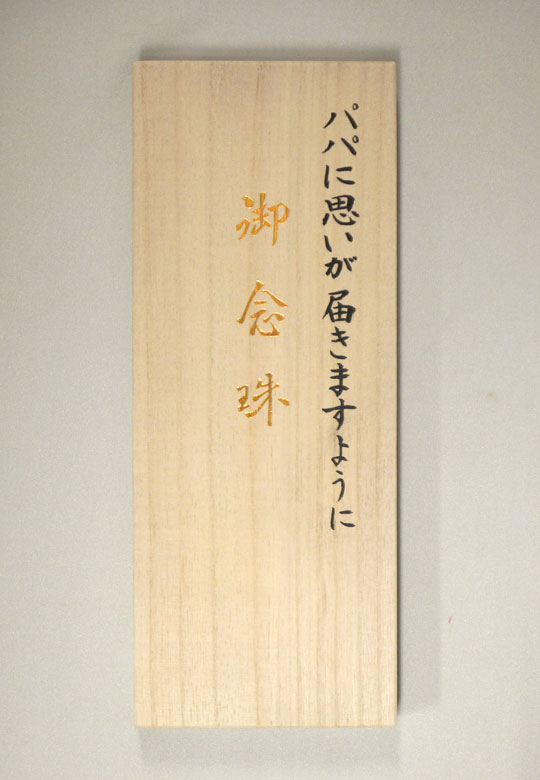 パパに思いが届きますように
御念珠